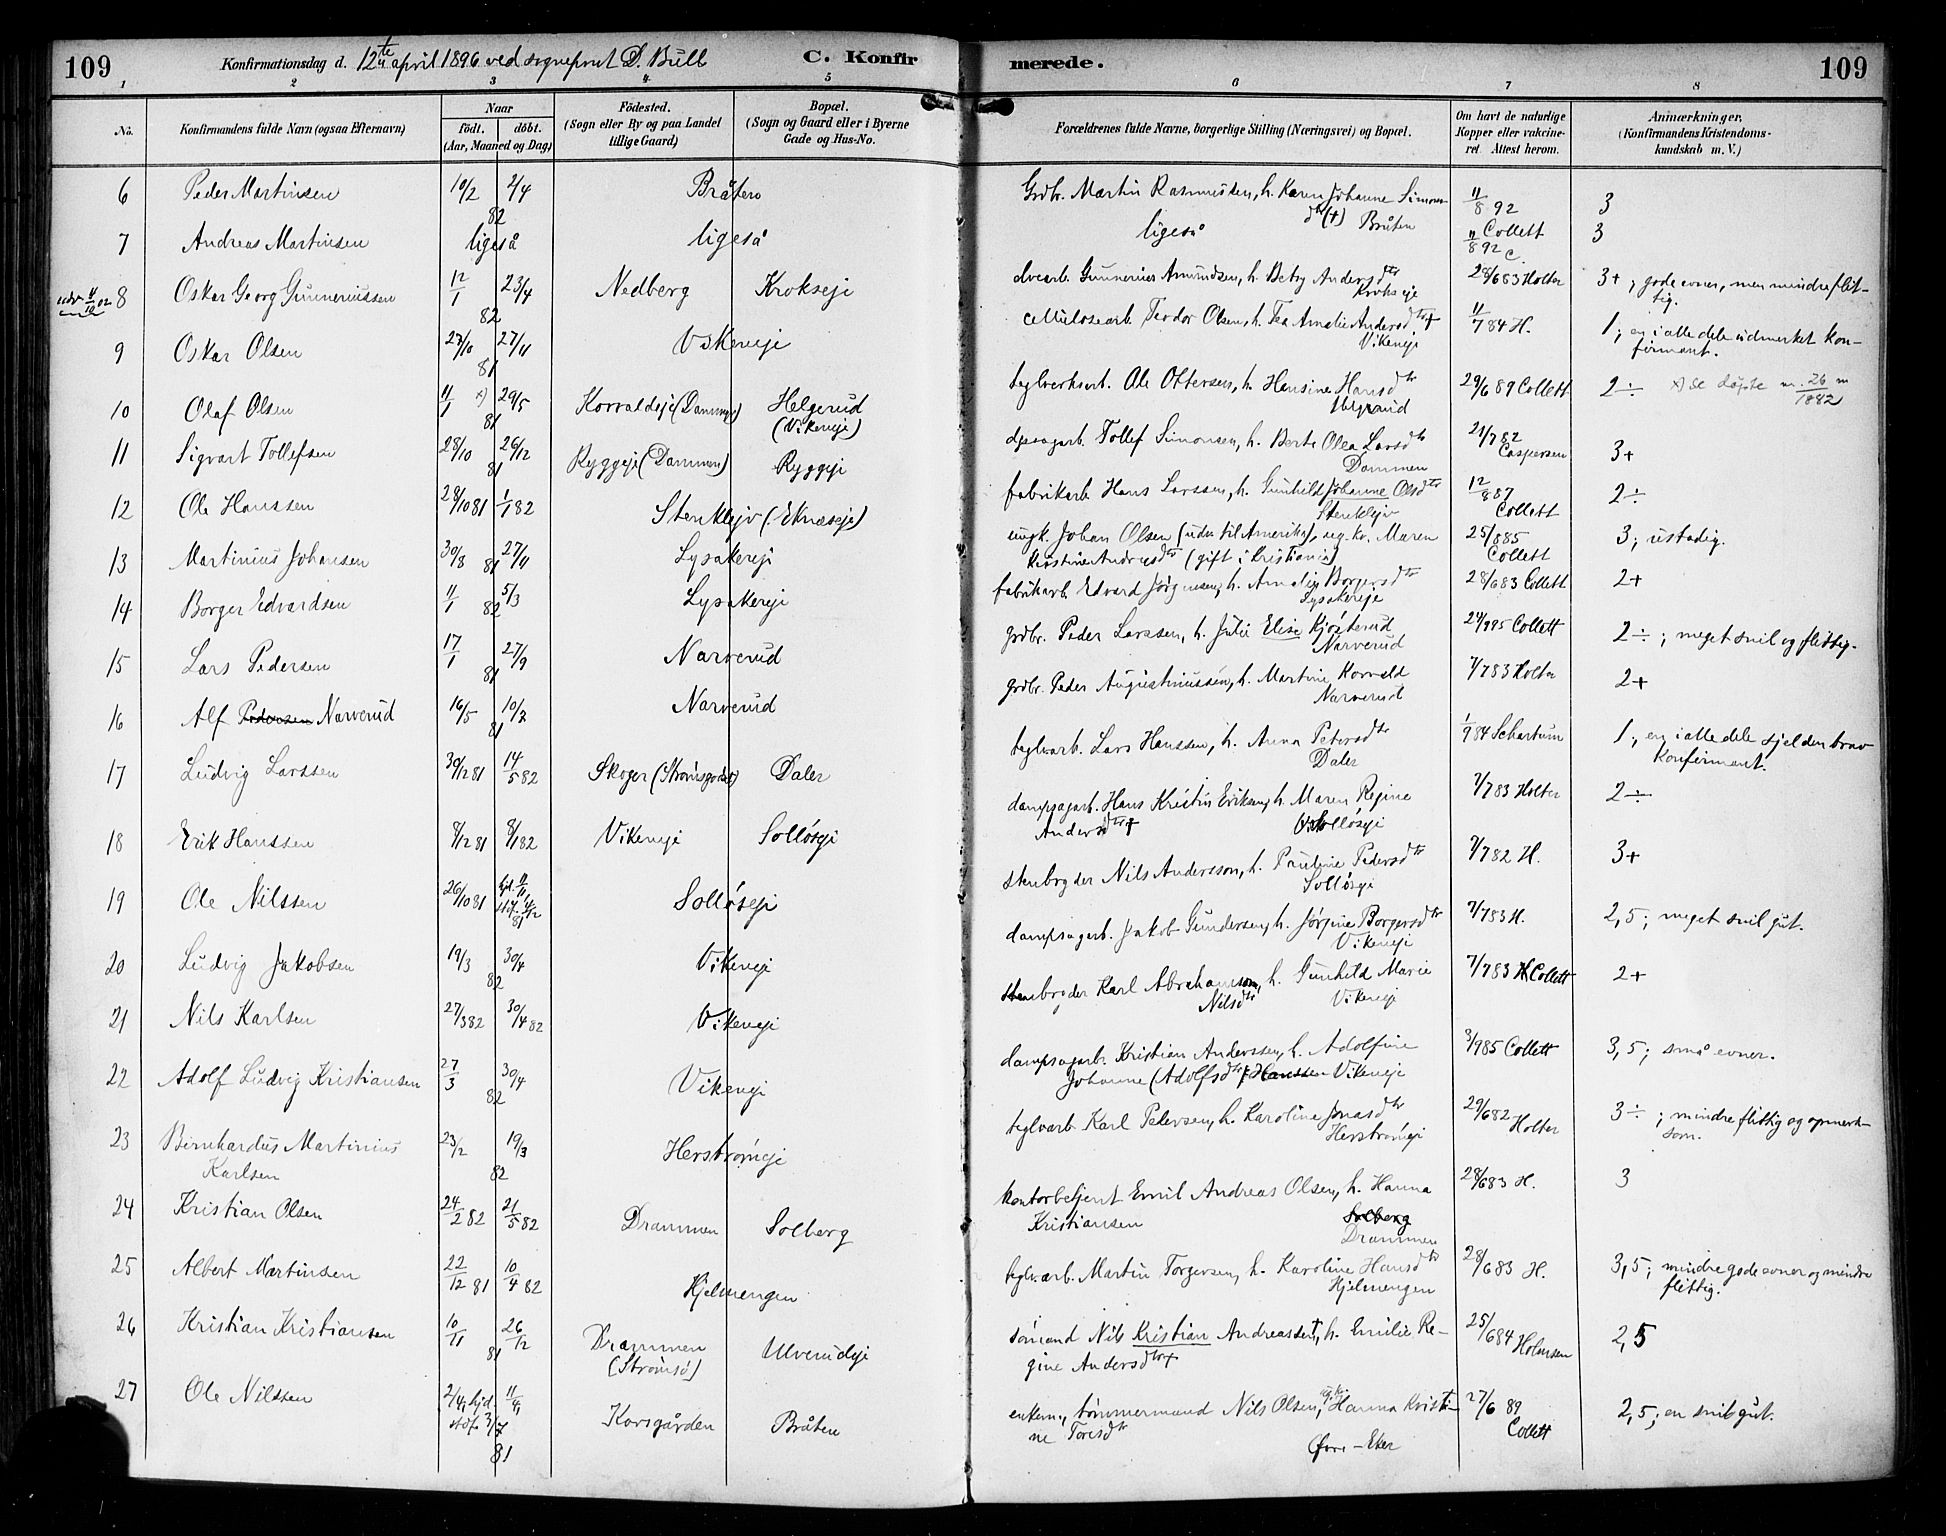 109 Konfirmationsdag d. 12te april 1896 ved sogneprest D. Bull C. Konfir merede. 109
1 2 3 4 5 6 7 8
No. Konfirmandens fulde Navn (ogsaa Efternavn) Naar født. døbt. (Aar, Maaned og Dag) Fødested. (Sogn eller By og paa Landet tillige Gaard) Bopæl. (Sogn og Gaard eller i Byerne Gade og Hus-No. Forældrenes fulde Navne, borgerlige Stilling (Næringsvei) og Bopæl. Om havt de naturlige Kopper eller vakcineret. Attest herom. Anmærkninger. (Konfirmandens Kristendomskundskab m. V.)
6 Peder Martinsen 10/2 2/4 82 Bråten Grdbr. Martin Rasmussen, h. Karen Johanne Simonsdtr (+) Bråten 11/8 92 Collett 3
7 Andreas Martinsen ligeså ligeså ligeså 11/8 92 C. 3
8 Oskar Georg Gunneriussen 12/1 23/4 82 Nedberg Krokseje Gunnerius Amundsen, h. Betsy Andersdtr Krokseje 28/6 83 Holter 3+; gode evner, men mindre flittig.
9 Oskar Olsen 27/10 27/11 81 Vikeneje cellulosearb. Teodor Olsen, h. Tea Amalie Andersdtr + Vikeneje 11/7 84 H. 1; en i alle dele udmerket konfirmant.
10 Olaf Olsen 11/1 x) 29/5 81 Korvaldeje (Dammen) Helgerud (Vikeneje) teglverksarb. Ole Ottersen, h. Hansine Hansdtr Helgerud 29/6 89 Collett 2÷ x) se døpte nr. 26 1882
11 Sigvart Tollefsen 28/10 26/12 81 Ryggeje (Dammen) Ryggeje Tollef Simonsen, h. Berte Olea Larsdtr Dammen 21/7 82 Caspersen 3+
12 Ole Hanssen 28/10 81 1/1 82 Stenklejv (Eknæseje) fabrikarb. Hans Larssen, h. Gunhild Johanne Olsdtr Stenklejv 12/8 87 Collett 2÷
13 Martinius Johansen 30/8 27/11 81 Lysakereje ungk. Johan Olsen (udv. til Amerika), ug. kv. Maren Kirstine Andersdtr (gift i Kristiania) 25/8 85 Collett 3; ustadig.
14 Borger Edvardsen 11/1 5/3 82 Lysakereje fabrikarb. Edvard Jørgensen, h. Amalie Borgersdtr Lysakereje 28/6 83 Collett 2+
15 Lars Pedersen 17/1 27/9 81 Narverud grdbr. Peder Larssen, h. Julie Elise Kjøsterud Narverud 24/9 95 Collett 2÷; meget snil og flittig.
16 Alf Pedersen Narverud 16/5 10/7 81 Narverud grdbr. Peder Augustinussen, h. Martine Korvald Narverud 7/7 83 Holter 2+
17 Ludvig Larssen 30/12 81 14/5 82 Skoger (Strømsgodset) Daler teglvarb. Lars Hanssen, h. Anna Petersdtr Daler 1/9 84 Schartum 1; en i alle dele sjelden brav konfirmant.
18 Erik Hanssen 8/12 81 8/1 82 Vikeneje Solløseje dampsagarb. Hans Kristin Eriksen, h. Maren Regine Andersdtr + Solløseje 7/7 83 Holter 2÷
19 Ole Nilssen 26/10 81 hjd. 11/11, stdf. 4/12 81 Solløseje stenbryder Nils Andersson, h. Pauline Pedersdtr Solløseje 7/7 82 H. 3+
20 Ludvig Jakobsen 19/3 30/4 82 Vikeneje dampsagarb. Jakob Gundersen, h. Jørgine Borgersdtr Vikeneje 7/7 83 H. 2,5; meget snil gut.
21 Nils Karlsen 27/3 82 30/4 82 Vikeneje stenbryder Karl Abrahamson, h. Gunhild Marie Nilsdtr Vikeneje 7/7 83 Collett 2+
22 Adolf Ludvig Kristiansen 27/3 30/4 82 Vikeneje dampsagarb. Kristian Anderssen, h. Adolfine Johanne (Adolfsdtr) Hanssen Vikeneje 3/9 85 Collett 3,5; små evner.
23 Bernhardus Martinius Karlsen 23/2 19/3 82 Herstrømeje teglvarb. Karl Pedersen, h. Karoline Jonasdtr Herstrømeje 29/6 82 Holter 3÷; mindre flittig og opmerksom.
24 Kristian Olsen 24/2 82 21/5 82 Drammen Solberg kontorbetjent Emil Andreas Olsen, h. Hanna Kristiansen Solberg Drammen 28/6 83 H. 3
25 Albert Martinsen 22/12 81 10/4 82 Hjelmengen teglvarb. Martin Torgersen, h. Karoline Hansdtr Hjelmengen 28/6 83 H. 3,5; mindre gode evner og mindre flittig.
26 Kristian Kristiansen 10/11 26/12 81 Drammen (Strømsø) Ulverudeje sømand Nils Kristian Andreassen +, h. Emilie Regine Andersdtr + 25/6 84 Holmsen 2,5
27 Ole Nilssen 2/4, hjd. 11/4, stdf. 3/7 81 Korsgården Bråten enkem., tømmermand Nils Olsen, ug. kv. Hanna Kristine Toresdtr Øvre-Eker 27/6 89 Collett 2,5; en snil gut.